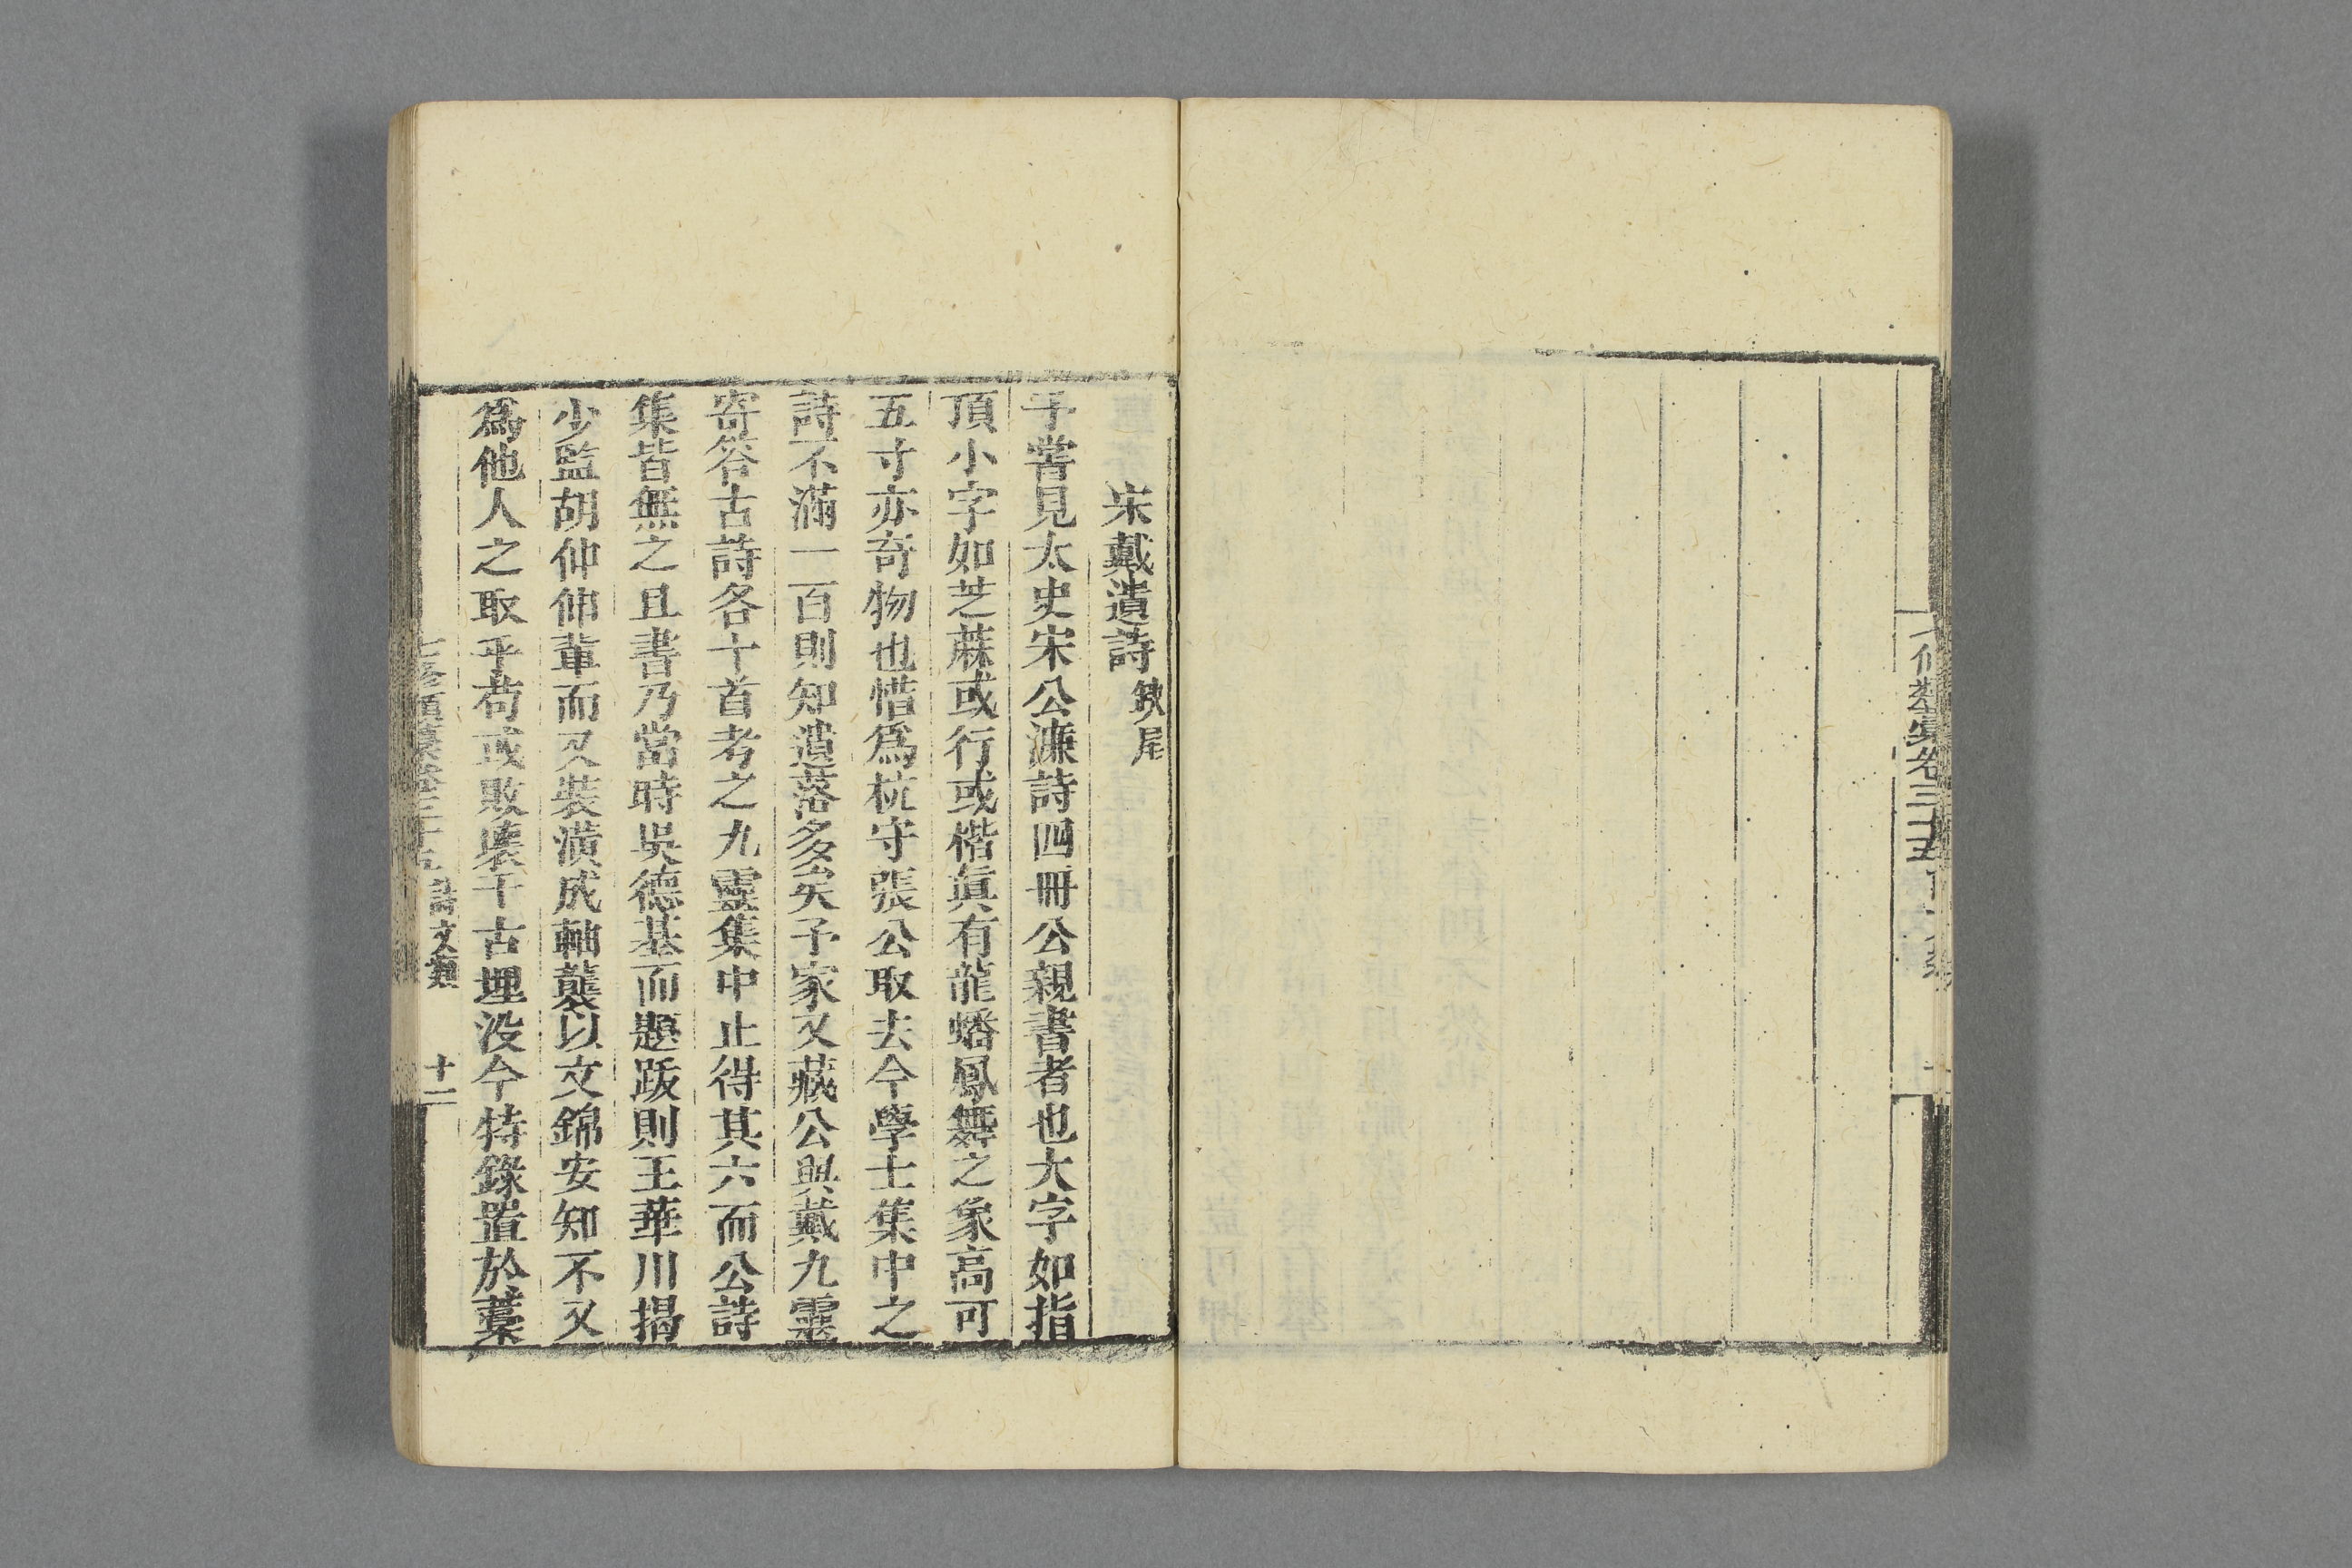 宋戴遺詩
欽尾
予嘗見太史宋公濂詩四冊公親書者也大字如指
頂小字如芝蔴或行或楷眞有龍蟠鳳舞之象高可
五寸亦奇物也惜爲杭守張公取去今學士集中之
詩不滿一百則知遺落多矣予家又藏公與戴九靈
寄答古詩各十首考之九靈集中止得其六而公詩
集皆無之且書乃當時吳德基而題跋則王華川揭
少監胡仲伸輩而又裝潢成軸襲以文錦安知不又
爲他人之取乎苟或敗壞千古埋没今特錄置於藁
七修類藁卷三十五 詩文類 十二